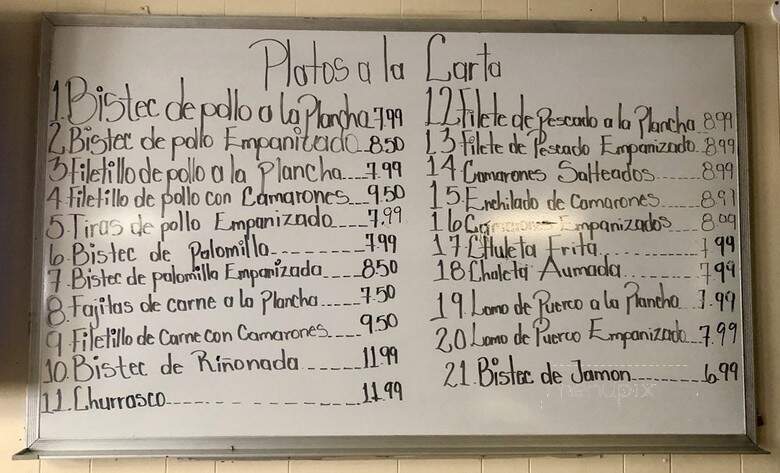 Platos a la Carta
1. Bistec de pollo a la Plancha 7.99
2. Bistec de pollo Empanizado 8.50
3. Filetillo de pollo a la Plancha 7.99
4. Filetillo de pollo con Camarones 9.50
5. Tiras de pollo Empanizado 7.99
6. Bistec de Palomilla 7.99
7. Bistec de palomilla Empanizada 8.50
8. Fajitas de carne a la Plancha 7.50
9. Filetillo de Carne con Camarones 9.50
10. Bistec de Riñonada 11.99
11. Churrasco 11.99
12. Filete de Pescado a la Plancha 8.99
13. Filete de Pescado Empanizado 8.99
14. Camarones Salteados 8.99
15. Enchilado de Camarones 8.91
16. Camarones Empanizados 8.99
17. Chuleta Frita 7.99
18. Chuleta Aumada 7.99
19. Lomo de Puerco a la Plancha 7.99
20. Lomo de Puerco Empanizado 7.99
21. Bistec de Jamon 6.99